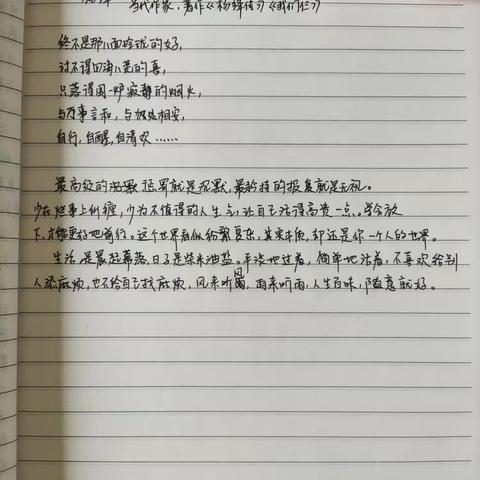 当代作家，著作《杨绛传》《我们仨》
终不是那八面玲珑的好，
讨不得四海八荒的喜，
只落得围一炉寂静的烟火，
与万事言和，与 相安，
自行，自醒，自清欢……
最高级的 惩罚就是沉默，最矜持的报复就是无视。
少在烂事上纠缠，少为不值得的人生气，让自己活得高贵一点。学会放
下，才能更好地前行。这个世界看似纷繁复杂，其实本质，却还是你一个人的世界。
生活是晨起暮落，日子是柴米油盐。平淡地过着，简单地活着，不喜欢给别
人添麻烦，也不给自己找麻烦，风来听风，雨来听雨，人生百味，随意就好。